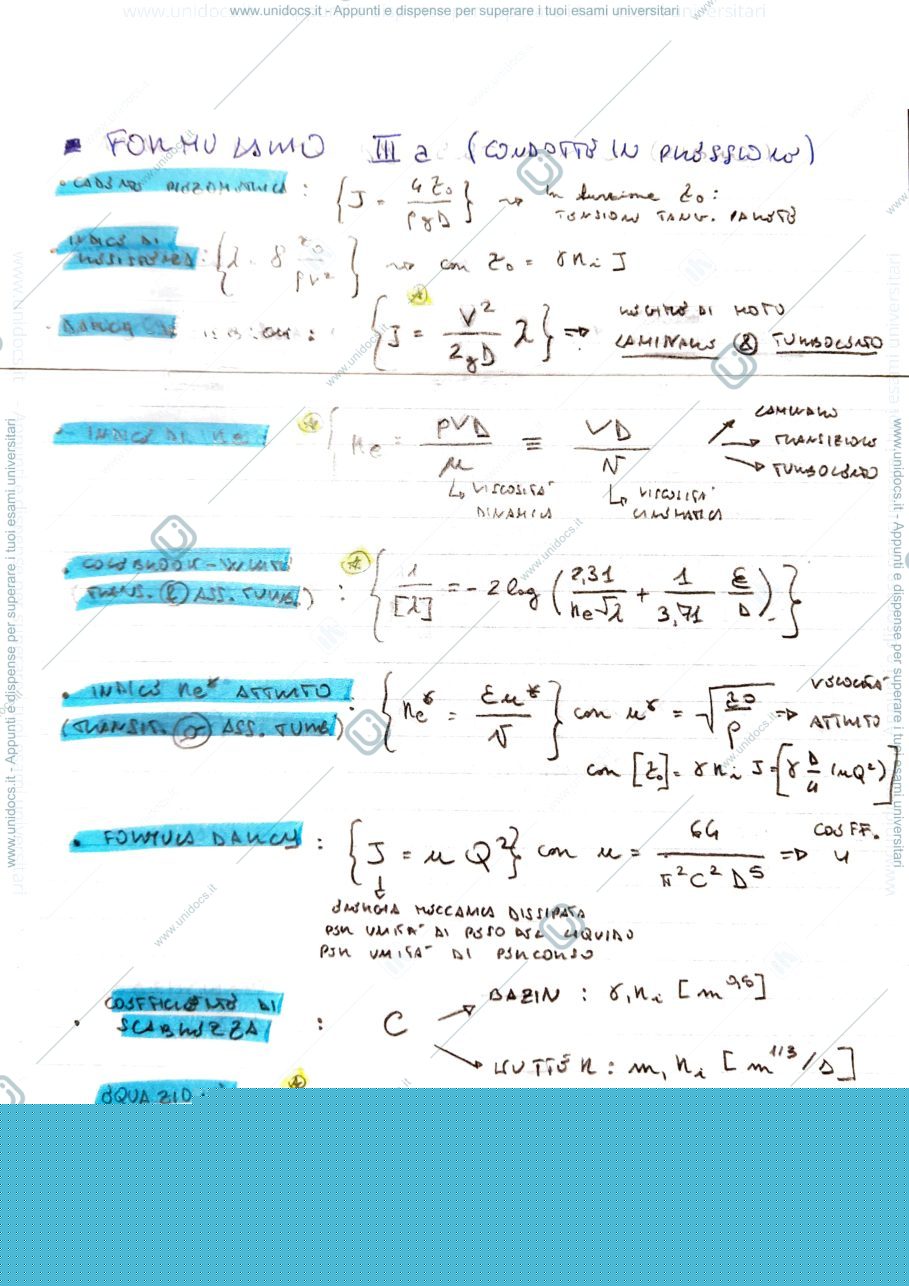 www.unidocs.it - Appunti e dispense per superare i tuoi esami universitari
▪ FORMULARIO IIIa (CONDOTTE IN PRESSIONE)
• CADENTE PIEZOMETRICA : {J = 4τ₀/ρgD} → In funzione τ₀: TENSIONE TANG. PARETE
• INDICE DI RESISTENZA : {λ = 8 τ₀/ρv²} → con τ₀ = γRᵢJ
• DARCY : {J = V²/2gD λ} ⇒ REGIME DI MOTO LAMINARE & TURBOLENTO
- INDICE DI Re : {Re = ρVD/μ ≡ VD/ν → LAMINARE
→ TRANSIZIONE
→ TURBOLENTO
↳ VISCOSITA' DINAMICA
↳ VISCOSITA' CINEMATICA
• COLEBROOK-WHITE (TRANS. & ASS. TURB.) : {1/[λ] = -2 log (2,31/Re√λ + 1/3,71 ε/D)}
• INDICE Re* ATTRITO (TRANSIZ. O ASS. TURB) : {Re* = εu*/ν} con u* = √(τ₀/ρ) ⇒ VELOCITA' ATTRITO
con [τ₀] = γRᵢJ = [γ D/4 (uQ²)]
• FORMULA DARCY : {J = uQ²} con u = 64/π²C²D⁵ ⇒ COEFF. u
↓
ENERGIA MECCANICA DISSIPATA
PER UNITA' DI PESO DEL LIQUIDO
PER UNITA' DI PERCORSO
• COEFFICIENTE DI SCABREZZA : C → BAZIN : γ, Rᵢ [m^0,5]
→ KUTTER : m, Rᵢ [m^1/3/s]
EQUAZIO
www.unidocs.it - Appunti e dispense per superare i tuoi esami universitari
www.unidocs.it - Appunti e dispense per superare i tuoi esami universitari